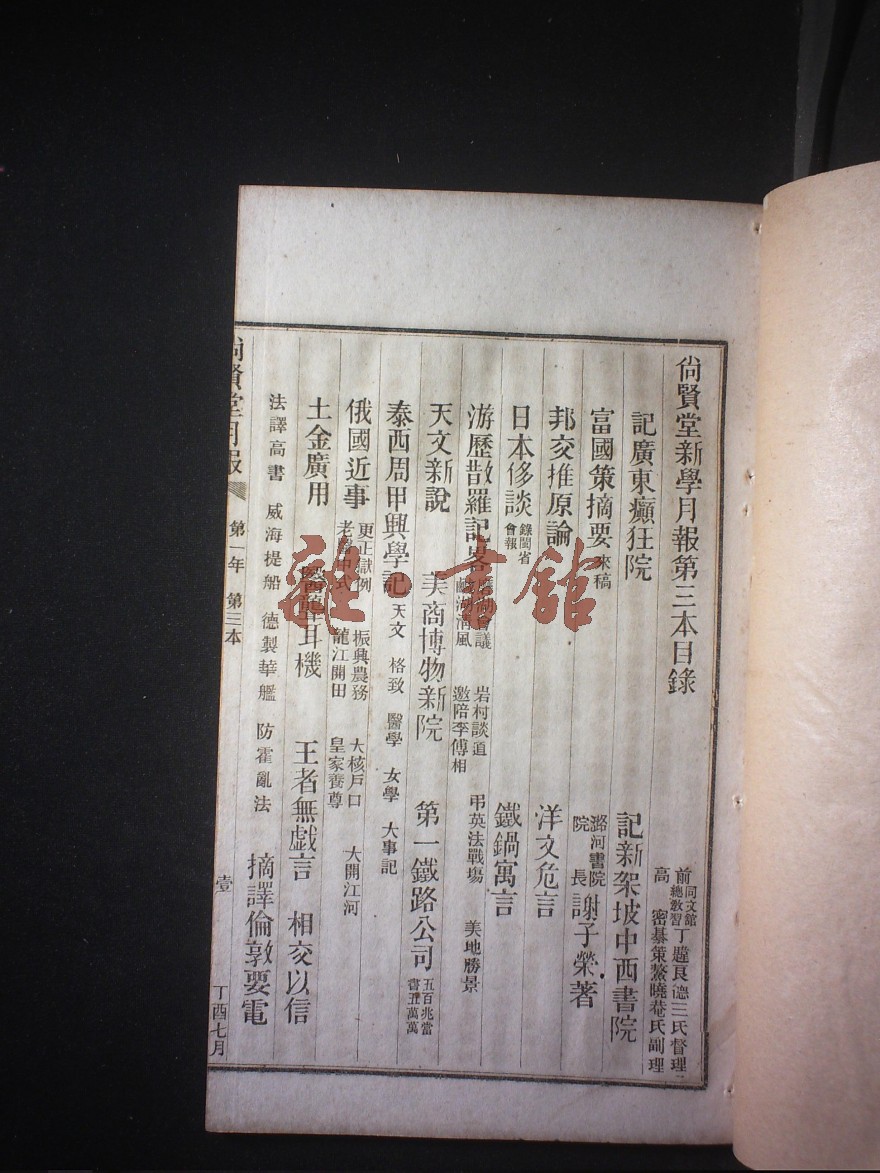 尙賢堂新學月報第三本目錄
前同文館總敎習丁韙良德三氏督理
高密綦策鰲曉菴氏副理
記廣東癲狂院 記新架坡中西書院
富國策摘要 來稿 潞河書院院長 謝子榮著
邦交推原論 洋文危言
日本侈談 錄閩省會報 鐵鍋寓言
游歷散羅記畧 會議 鹹湖淸風 岩村談道 邀陪李傅相 弔英法戰塲 美地勝景
天文新說 美商博物新院 第一鐵路公司 五百兆當書五萬萬
泰西周甲興學記 天文 格致 醫學 女學 大事記
俄國近事 更正獄例 老中式 振興農務 龍江開田 大核戶口 皇家養尊 大開江河
土金廣用 醫聾耳機 王者無戲言 相交以信
法譯高書 威海提船 德製華艦 防霍亂法 摘譯倫敦要電
尙賢堂月報 第一年 第三本 壹 丁酉七月
雜·書館